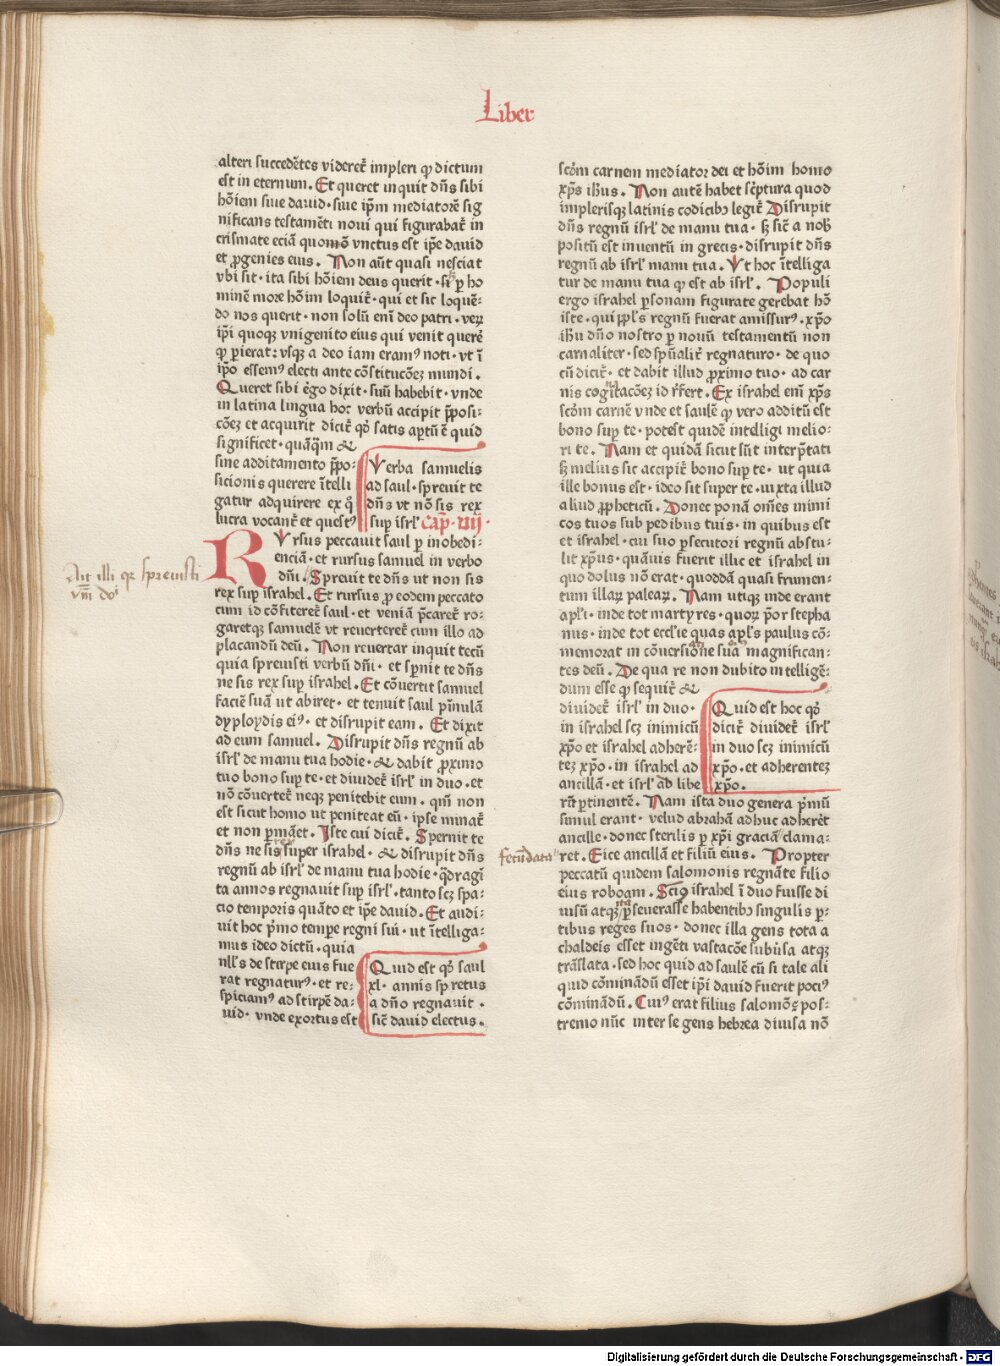 Liber
alteri succedētes videret᷑ impleri ꝙ dictum
est in eternum. Et queret inquit dñs sibi
hōiem siue dauid· siue ip̄m mediatorē sig
nificans testamēti noui qui figurabat᷑ in
crismate eciā quomō vnctus est ip̄e dauid
et ꝓgenies eius. Non aūt quasi nesciat
vbi sit· ita sibi hōiem deus querit· sꝫ ꝑ ho
minē more hōim loquit᷑· qui et sic loquē-
do nos querit· non solū enī deo patri· veꝝ
ip̄i quoqꝫ vnigenito eius qui venit querē
ꝙ ꝑierat: vsqꝫ a deo iam eramꝰ noti· vt ī
ip̄o essemꝰ electi ante cōstitucōeꝫ mundi.
Queret sibi ergo dixit· suū habebit· vnde
in latina lingua hoc verbū accipit p̄posi-
cōeꝫ et acquirit dicit᷑ qꝭ satis aꝑtū ē quid
significet· quāqȝm &
sine additamento p̄po-
sicionis querere ītelli
gatur adquirere ex qȝ
lucra vocant᷑ et questꝰ
Verba samuelis
ad saul· spreuit te
dñs vt nō sis rex
suꝑ isrl' Cap̄· VIIJ·
RVrsus peccauit saul ꝑ inobedi-
enciā· et rursus samuel in verbo
dñi. Spreuit te dñs ut non sis
rex suꝑ israhel. Et rursus ꝓ eodem peccato
cum id cōfiteret᷑ saul· et veniā p̄caret᷑ ro-
garetqꝫ samuelē vt reuerteret᷑ cum illo ad
placandū deū. Non reuertar inquit tecū
quia spreuisti verbū dñi· et sꝑnit te dñs
ne sis rex suꝑ israhel. Et cōuertit samuel
faciē suā ut abiret· et tenuit saul pīnulā
dyploydis eiꝰ· et disrupit eam. Et dixit
ad eum samuel. Disrupit dñs regnū ab
isrl' de manu tua hodie· & dabit ꝓximo
tuo bono suꝑ te· et diuidet᷑ isrl' in duo· et
nō cōuertet᷑ neqꝫ penitebit eum· qm̄ non
est sicut homo ut peniteat eū· ipse minat᷑
et non ꝑmāet. Iste cui dicit᷑. Spernit te
dñs ne sis rex super israhel· & disrupit dñs
regnū ab isrl' de manu tua hodie· qȝdragī
ta annos regnauit suꝑ isrl'· tanto scꝫ spa-
cio temporis quāto et ip̄e dauid. Et audi-
uit hoc pͥmo tempe regni sui· ut ītelliga-
mus ideo dictū· quia
nll's de stirpe eius fue
rat regnaturꝰ· et re-
spiciamꝰ ad stirpē da-
uid· vnde exortus est
Quid est qꝭ saul
xl· annis sp̄retus
a dño regnauit·
sic̄ dauid electus.
Ait illi qꝛ spreuisti
scd̄m carnem mediator dei et hōim homo
xp̄s ih̄us. Non autē habet sc̄ptura quod
implerisqꝫ latinis codicibꝰ legit᷑ Disrupit
dñs regnū isrl' de manu tua· sꝫ sic̄ a nob̄
positū est inuentū in grecis· disrupit dñs
regnū ab isrl' manu tua. Vt hoc ītelliga
tur de manu tua ꝙ est ab isrl'. Populi
ergo israhel ꝑsonam figurate gerebat hō
iste· qui ppl's regnū fuerat amissurꝰ· xp̄o
ih̄u dño nostro ꝑ nouū testamentū non
carnaliter· sed sp̄ualit᷑ regnaturo· de quo
cū dicit᷑· et dabit illud ꝓximo tuo· ad car
nis cognatacōeꝫ id r̄fert. Ex israhel enī xp̄s
scd̄m carnē vnde et saulē ꝙ vero additū est
bono suꝑ te· potest quidē intelligi melio-
ri te. Nam et quidā sicut sūt interp̄tati
sꝫ melius sic accipit᷑ bono suꝑ te· ut quia
ille bonus est· ideo sit super te· iuxta illud
aliud ꝓpheticū. Donec ponā om̄es inimi
cos tuos sub pedibus tuis· in quibus est
et israhel· cui suo ꝑsecutori regnū abstu-
lit xp̄us· quāuis fuerit illic et israhel in
quo dolus nō erat· quoddā quasi frumen-
tum illaꝝ paleaꝝ. Nam utiqꝫ inde erant
apl'i· inde tot martyres· quoꝝ p̄or stepha
nus· inde tot eccl'ie quas apl's paulus cō-
memorat in cōuersione sua magnifican-
tes deū. De qua re non dubito intelligē-
dum esse ꝙ sequit᷑ &
diuidet᷑ isrl' in duo·
in israhel scꝫ inimicū
xp̄o et israhel adherē-
teꝫ xp̄o· in israhel ad
ancillā· et isrl' ad libe
Quid est hoc qꝭ
dicit᷑ diuidet᷑ isrl'
in duo scꝫ inimicū
xp̄o· et adherenteꝫ
xp̄o.
rā ꝑtinentē. Nam ista duo genera pͥmū
simul erant· velud abrahā adhuc adheret
ancille· donec sterilis ꝑ xp̄i graciā clama-
ret. Eice ancillā et filiū eius. Propter
fecundata
peccatū quidem salomonis regnāte filio
eius roboam. Sciꝰ israhel ī duo fuisse di
uisū atqꝫ ita ꝑseuerasse habentibꝰ singulis ꝑ-
tibus reges suos· donec illa gens tota a
chaldeis esset ingēti vastacōe subūsa atqꝫ
trāslata· sed hoc quid ad saulē cū si tale ali
quid cōminādū esset ip̄i dauid fuerit pociꝰ
cōminādū. Cuiꝰ erat filius salomō· pos-
tremo nūc inter se gens hebrea diuisa nō
Digitalisierung gefördert durch die Deutsche Forschungsgemeinschaft - DFG